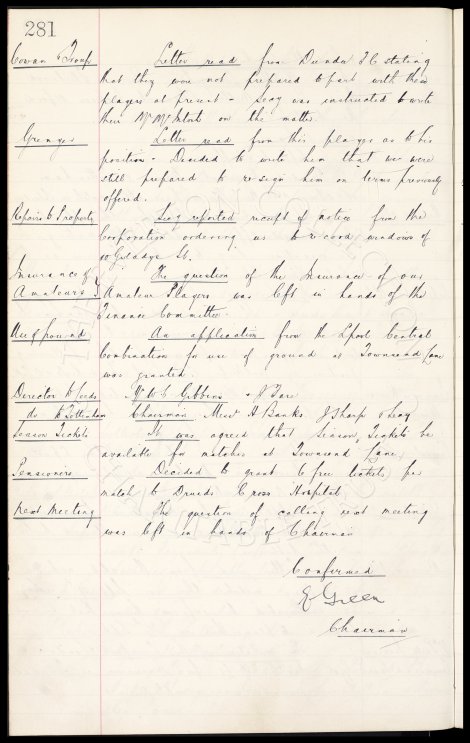 281
Cowan & Troup Letter read from Dundee F C stating
that they were not prepared to part with these
players at present - Secy was instructed to write
their Mr McIntosh on the matter.
Grenyer Letter read from this player as to his
position - Decided to write him that we were
still prepared to re-sign him on terms previously
offered.
Repairs to Property Secy reported receipt of notice from the
Corporation ordering us to re-cord windows of
Goodison St.
Insurance of The question of the Insurance of our
Amateurs Amateur Players was left in hands of the
Finance Committee.
Use of ground An application from the Lpool Central
Combination for use of ground at Townsend Lane
was granted.
Director to Leeds Mr W C Gibbins &
do to Tottenham Chairman Messrs A Banks J Sharp & Secy
Season Tickets It was agreed that Season Tickets be
available for matches at Townsend Lane.
Pensioners Decided to grant 6 free tickets per
match to Druids Cross Hospital.
Next Meeting The question of calling next meeting
was left in hands of Chairman
Confirmed
E Green
Chairman